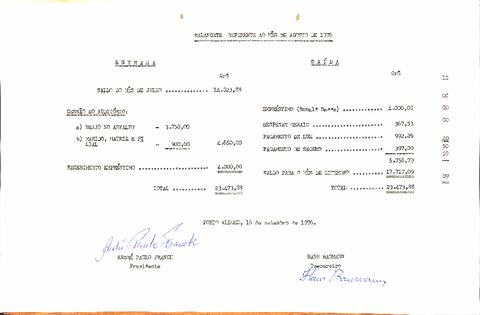 BALANCETE REFERENTE AO MÊS DE AGOSTO DE 1976
ENTRADA
Cr$
SALDO DO MÊS DE JULHO ............ 14.823,88
CESSÃO AO AUDITÓRIO:
a) BEIJO NO ASFALTO - 3.750,00
b) MARIDO, MATRIZ E FI
LIAL - 900,00 4.650,00
RECEBIMENTO EMPRÉSTIMO ........... 4.000,00
TOTAL .......... 23.473,88
SAÍDA
Cr$
EMPRÉSTIMO ............ 4.000,00
DESPESAS GERAIS ............ 367,53
PAGAMENTO DE LUZ ........... 992,26
PAGAMENTO DE SEGURO ......... 397,00
5.756,79
SALDO PARA O MÊS DE SETEMBRO .. 17.717,09
TOTAL ......... 23.473,88
PORTO ALEGRE, 16 de setembro de 1976.
ANDRÉ PAULO FRANCK
Presidente
HANS BAUMANN
Tesoureiro